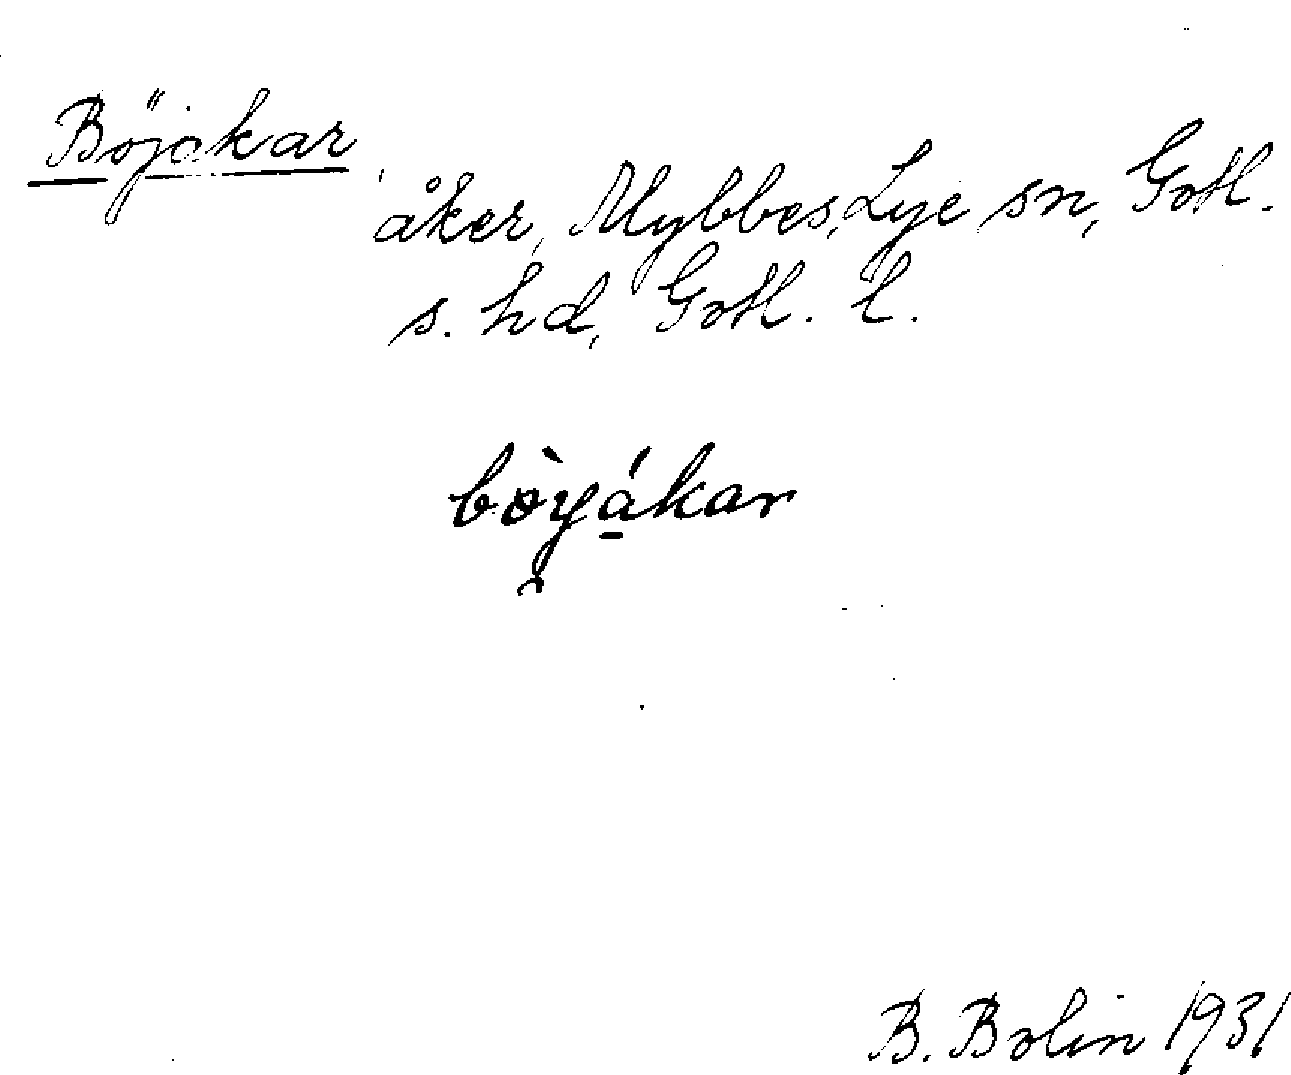 Böjakar
åker, Mybbes, Lye sn, Gotl.
s. hd, Gotl. l.
bòyákar
B. Bolin 1931